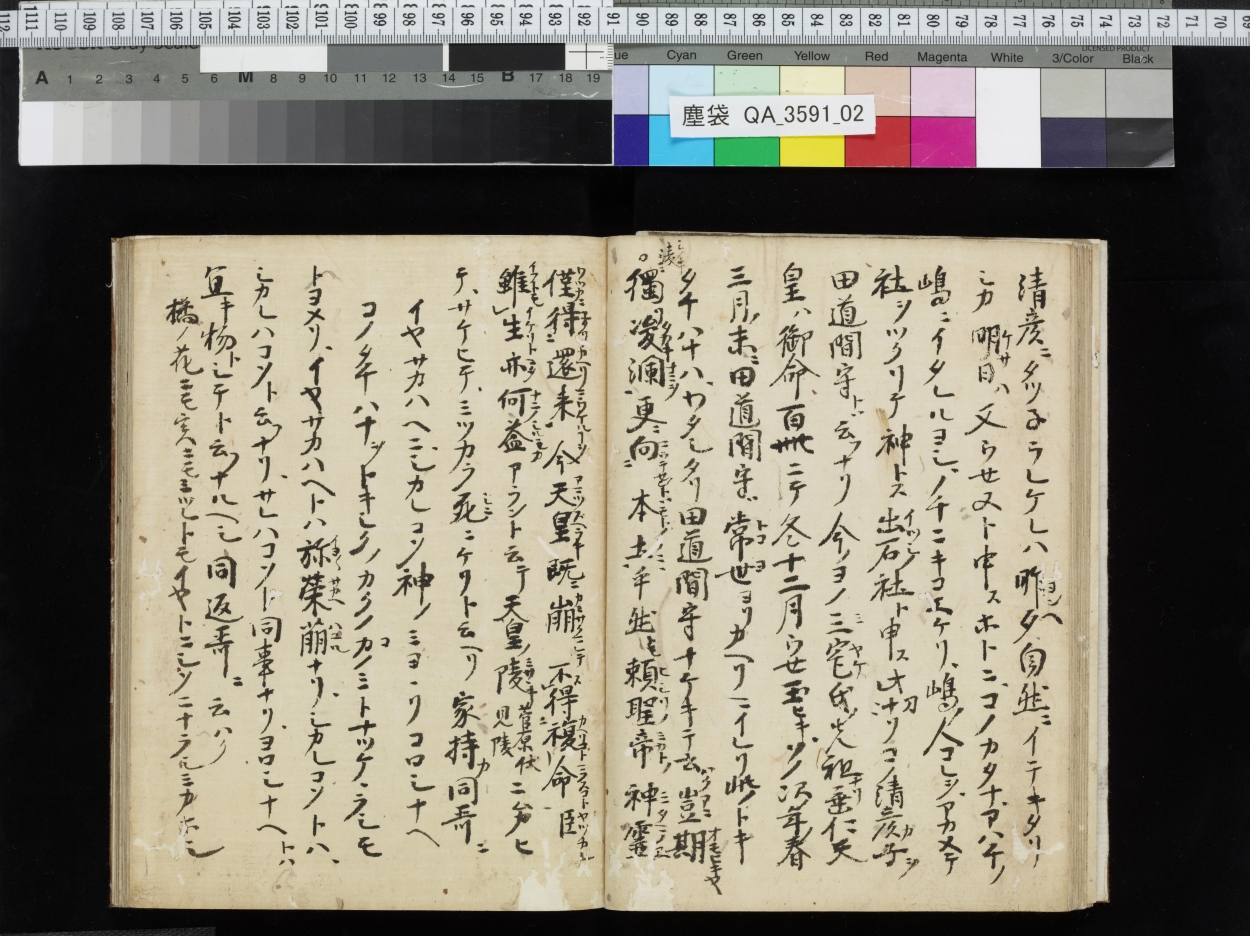 塵袋 QA_3591_02
Cyan Green Yellow Red Magenta White 3/Color Black
LICENSED PRODUCT
A 1 2 3 4 5 6 M 8 9 10 11 12 13 14 15 B 17 18 19
清彦ニタツネラレケレハ昨夕自然ニイテキタリ
シカ明日ハ又ウセヌト申スホトニコノカタナアハチノ
嶋ニイタレルヨシノチニキコエケリ嶋ノ人コレヲアカメテ
社ヲツクリテ神トス出石社ト申ス此刀ナリコノ清彦カ子
田道間守ト云フナリ今ノヨノ三宅氏ノ先祖ナリ垂仁天
皇ハ御命百卌ニテ冬十二月ウセ玉ヒキソノ次年春
三月ノ末ニ田道間守常世ヨリカヘリニイレリ此ノトキ
タチハナハワタレタリ田道間守ナケキテ云豈期
獨凌瀾更向本土乎然モ頼聖帝神靈
僅得還来今天皇既崩不得復命臣
雖生亦何益アラント云テ天皇ノ陵菅原伏見陵ニムカヒ
テサケヒテミツカラ死ニケリト云ヘリ家持同哥ニ
イヤサカハヘニシカレコソ神ノミヨヨリヨロシナヘ
コノタチハナヲトキシクノカクノカノミトナツケケラシモ
トヨメリイヤサカハヘトハ弥榮崩ナリシカレコソトハ
シカレハコソト云ナリサレハコソト同事ナリヨロシナヘトハ
宜キ物トシテト云フナルヘシ同返哥ニ云ハク
橘ノ花ニモ実ニモミツレトモイヤトコシクニナヲシミカホシ